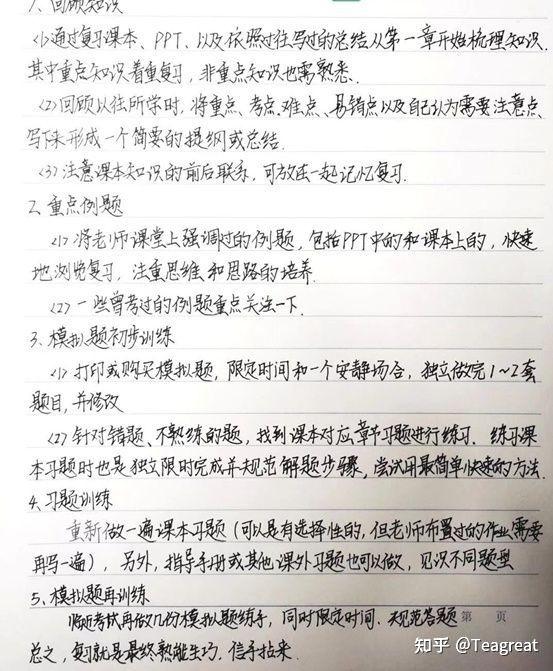 1、回顾知识
<1>通过复习课本、PPT、以及依照过往写过的总结从第一章开始梳理知识.
其中重点知识着重复习，非重点知识也需熟悉.
<2>回顾以往所学时，将重点、考点、难点、易错点以及自己认为需要注意点、
写下来形成一个简要的提纲或总结.
<3>注意课本知识的前后联系，可放在一起记忆复习.
2、重点例题
<1>将老师课堂上强调过的例题，包括PPT中的和课本上的，快速
地浏览复习，注重思维和思路的培养.
<2>一些曾考过的例题重点关注一下.
3、模拟题初步训练
<1>打印或购买模拟题，限定时间和一个安静场合，独立做完1~2套
题目，并修改
<2>针对错题、不熟练的题，找到课本对应章节习题进行练习.练习课
本习题时也是独立限时完成并规范解题步骤，尝试用最简单快速的方法.
4、习题训练
重新做一遍课本习题（可以是有选择性的，但老师布置过的作业需要
再写一遍），另外，指导手册或其他课外习题也可以做，见识不同题型
5、模拟题再训练
临近考试再做几份模拟题练手，同时限定时间、规范答题 第 页
总之，复习就是最终熟能生巧、信手拈来.
知乎 @Teagreat